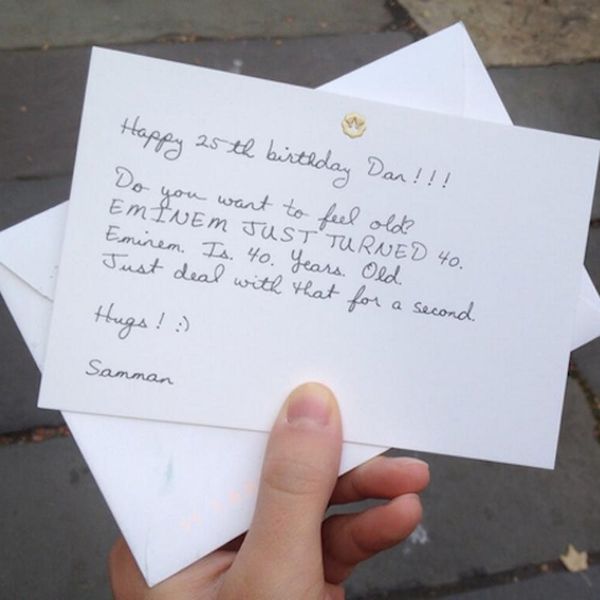 Happy 25th birthday Dan!!!
Do you want to feel old?
EMINEM JUST TURNED 40.
Eminem. Is. 40. Years. Old.
Just deal with that for a second.
Hugs! :)
Samman